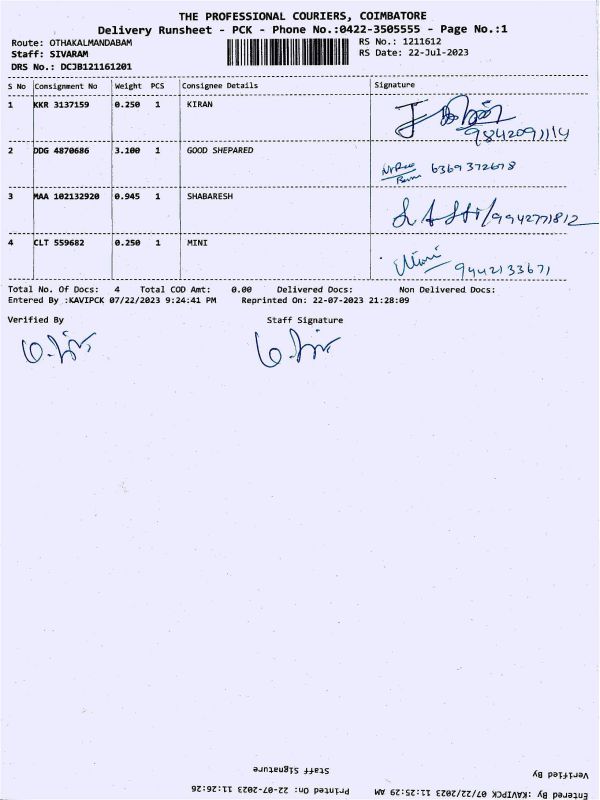 THE PROFESSIONAL COURIERS, COIMBATORE
Delivery Runsheet - PCK - Phone No.:0422-3505555 - Page No.:1
Route: OTHAKALMANDABAM RS No.: 1211612
Staff: SIVARAM RS Date: 22-Jul-2023
DRS No.: DCJB121161201
S No Consignment No Weight PCS Consignee Details Signature
1 KKR 3137159 0.250 1 KIRAN
2 DDG 4870686 3.100 1 GOOD SHEPARED 6369372678
3 MAA 102132920 0.945 1 SHABARESH 9942771812
4 CLT 559682 0.250 1 MINI Mini 9442133671
Total No. Of Docs: 4 Total COD Amt: 0.00 Delivered Docs: Non Delivered Docs:
Entered By :KAVIPCK 07/22/2023 9:24:41 PM Reprinted On: 22-07-2023 21:28:09
Verified By Staff Signature
Verified By Staff Signature
Entered By :KAVIPCK 07/22/2023 11:25:29 AM Printed On: 22-07-2023 11:26:26